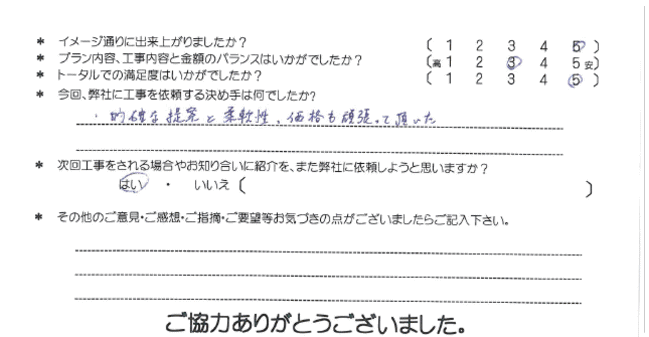 * イメージ通りに出来上がりましたか？ ( 1 2 3 4 5 )
* プラン内容、工事内容と金額のバランスはいかがでしたか？ (高 1 2 3 4 5 安)
* トータルでの満足度はいかがでしたか？ ( 1 2 3 4 5 )
* 今回、弊社に工事を依頼する決め手は何でしたか?
・的確な提案と柔軟性、価格も頑張って頂いた
* 次回工事をされる場合やお知り合いに紹介を、また弊社に依頼しようと思いますか？
はい ・ いいえ ( )
* その他のご意見・ご感想・ご指摘・ご要望等お気づきの点がございましたらご記入下さい。
ご協力ありがとうございました。